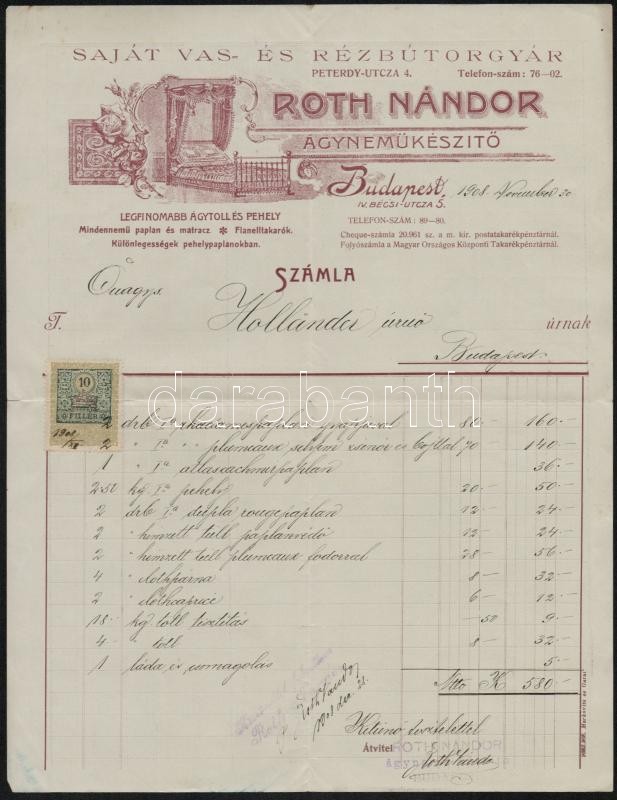 SAJÁT VAS- ÉS RÉZBÚTORGYÁR
PETERDY-UTCZA 4. Telefon-szám: 76—02.
ROTH NÁNDOR
ÁGYNEMŰKÉSZITŐ
Budapest, 1908. November 30
IV. BÉCSI-UTCZA 5.
LEGFINOMABB ÁGYTOLL ÉS PEHELY
Mindennemű paplan és matracz * Flanelltakarók.
Különlegességek pehelypaplanokban.
TELEFON-SZÁM: 89—80.
Cheque-számla 20.961 sz. a m. kir. postatakarékpénztárnál.
Folyószámla a Magyar Országos Központi Takarékpénztárnál.
SZÁMLA
T. Hollánder úrnak
Budapest
10
FILLÉR
1908
darabanth
2 drb Iª 80 160.—
2 " Iª " plumeaux selyem zsinór és bojttal 70 140.—
1 " Iª paplan 36.—
2.50 kg Iª pehely 20.— 50.—
2 drb Iª dupla rouge paplan 12.— 24.—
2 " himzett tüll paplanvédő 12.— 24.—
2 " himzett tüll plumeaux fodorral 28.— 56.—
4 " párna 8.— 32.—
2 " caprice 6.— 12.—
18.— kg toll tisztitás —.50 9.—
4.— " toll 8.— 32.—
1 láda és csomagolás 5.—
Ntto K 580.—
Kitünő tisztelettel
Átvitel
ROTH NÁNDOR
Roth Nándor
1908 dec. 21.